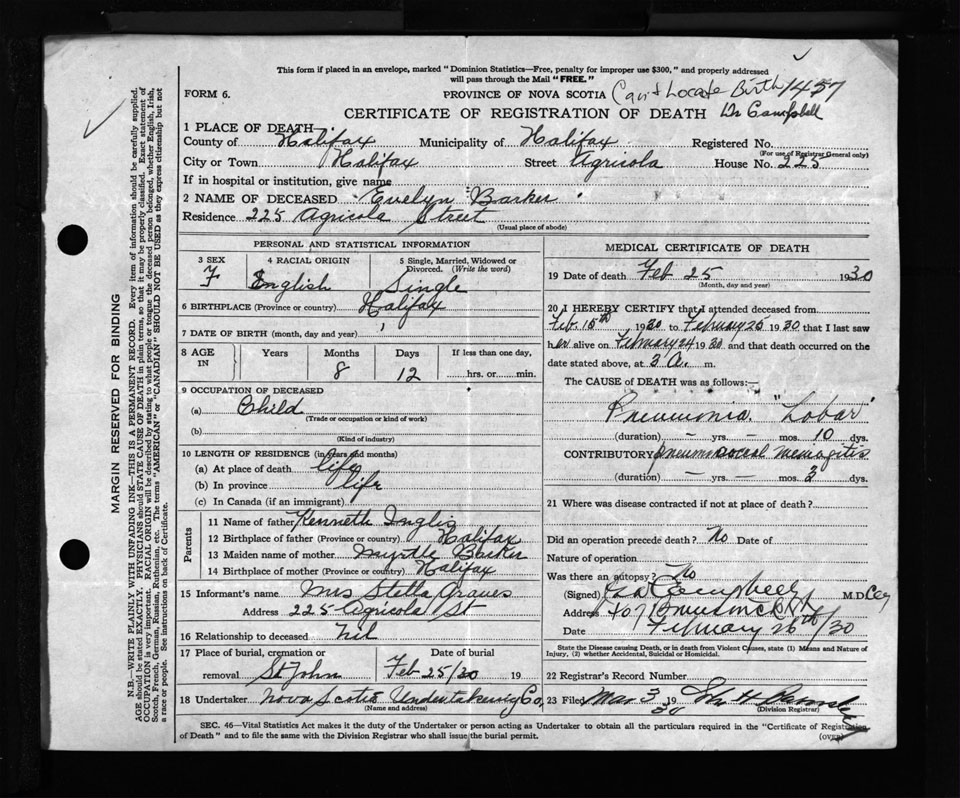 This form if placed in an envelope, marked "Dominion Statistics—Free, penalty for improper use $300," and properly addressed
will pass through the Mail "FREE."
FORM 6.
PROVINCE OF NOVA SCOTIA
Can't Locate Birth 1457
CERTIFICATE OF REGISTRATION OF DEATH Dr Campbell
1 PLACE OF DEATH
County of Halifax Municipality of Halifax Registered No.
(For use of Registrar General only)
City or Town Halifax Street Agricola House No. 225
If in hospital or institution, give name
2 NAME OF DECEASED Evelyn Barker
Residence 225 Agricola Street
(Usual place of abode)
PERSONAL AND STATISTICAL INFORMATION
3 SEX F
4 RACIAL ORIGIN English
5 Single, Married, Widowed or Divorced. (Write the word) Single
6 BIRTHPLACE (Province or country) Halifax
7 DATE OF BIRTH (month, day and year)
8 AGE IN Years Months 8 Days 12 If less than one day, hrs. or min.
9 OCCUPATION OF DECEASED
(a) Child
(Trade or occupation or kind of work)
(b)
(Kind of industry)
10 LENGTH OF RESIDENCE (in years and months)
(a) At place of death life
(b) In province life
(c) In Canada (if an immigrant)
Parents
11 Name of father Kenneth Inglis
12 Birthplace of father (Province or country) Halifax
13 Maiden name of mother Myrtle Barker
14 Birthplace of mother (Province or country) Halifax
15 Informant's name Mrs Stella Graves
Address 225 Agricola St
16 Relationship to deceased Nil
17 Place of burial, cremation or removal St John
Date of burial Feb 25/30 19
18 Undertaker Nova Scotia Undertaking Co.
(Name and address)
MEDICAL CERTIFICATE OF DEATH
19 Date of death Feb 25 1930
(Month, day and year)
20 I HEREBY CERTIFY that I attended deceased from
Feb. 15th 1930 to February 25 1930 that I last saw
her alive on February 24 1930 and that death occurred on the
date stated above, at 3 A. m.
The CAUSE of DEATH was as follows:—
Pneumonia "Lobar"
(duration) – yrs. – mos. 10 dys.
CONTRIBUTORY pneumococcal meningitis
(duration) – yrs. – mos. 3 dys.
21 Where was disease contracted if not at place of death?
Did an operation precede death? No Date of
Nature of operation
Was there an autopsy? No
(Signed) Campbell M.D.
Address 407 Brunswick St
Date February 26th/30
State the Disease causing Death, or in death from Violent Causes, state (1) Means and Nature of
Injury, (2) whether Accidental, Suicidal or Homicidal.
22 Registrar's Record Number
23 Filed Mar 3
(Division Registrar)
SEC. 46—Vital Statistics Act makes it the duty of the Undertaker or person acting as Undertaker to obtain all the particulars required in the "Certificate of Registration
of Death" and to file the same with the Division Registrar who shall issue the burial permit.
(over)
MARGIN RESERVED FOR BINDING
N.B.—WRITE PLAINLY WITH UNFADING INK—THIS IS A PERMANENT RECORD. Every item of information should be carefully supplied.
AGE should be stated EXACTLY. PHYSICIANS should STATE CAUSE OF DEATH in plain terms, so that it may be properly classified. Exact statement of
OCCUPATION is very important. RACIAL ORIGIN will be described by stating to what people or tongue the deceased person belonged, whether English, Irish,
Scotch, French, German, Russian, Ruthenian, etc. The terms "AMERICAN" or "CANADIAN" SHOULD NOT BE USED as they express citizenship but not
a race or people. See instructions on back of Certificate.